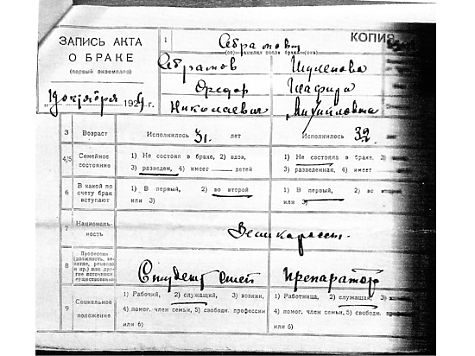 КОПИЯ
ЗАПИСЬ АКТА
О БРАКЕ
(первый экземпляр)
19 октября 192 г.
1
Абрамов
Шуленова
Федор
Глафира
Николаевич
Михайловна
3 Возраст Исполнилось 31 лет Исполнилось 32
4/5 Семейное состояние
1) Не состояла в браке, 2) вдов, 3) разведен, 4) имеет детей
1) Не состояла в браке, 2) 3) разведенная, 4) имеет
6 В какой по счету брак вступают
1) В первый, 2) во второй или 3)
1) В первый, 2) во или 3)
7 Национальность
Великороссы
8
Студент
препаратор
9 Социальное положение
1) Рабочий, 2) служащий, 3) хозяин,
4) помог. член семьи, 5) свободн. профессии
или 6)
1) Работница, 2) служащая, 3)
4) помог. член семьи, 5) свободн.
или 6)